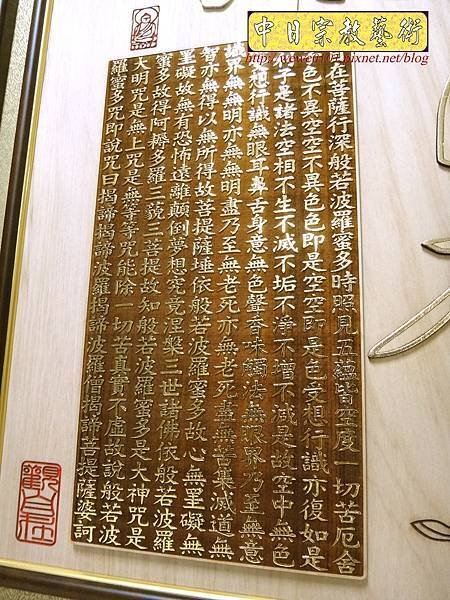 中日宗教藝術
在菩薩行深般若波羅蜜多時照見五蘊皆空度一切苦厄舍
色不異空空不異色色即是空空即是色受想行識亦復如是
子是諸法空相不生不滅不垢不淨不增不減是故空中無色
想行識無眼耳鼻舌身意無色聲香味觸法無眼界乃至無意
識界無無明亦無無明盡乃至無老死亦無老死盡無苦集滅道無
智亦無得以無所得故菩提薩埵依般若波羅蜜多故心無罣礙無
罣礙故無有恐怖遠離顛倒夢想究竟涅槃三世諸佛依般若波羅
蜜多故得阿耨多羅三藐三菩提故知般若波羅蜜多是大神咒是
大明咒是無上咒是無等等咒能除一切苦真實不虛故說般若波
羅蜜多咒即說咒曰揭諦揭諦波羅揭諦波羅僧揭諦菩提薩婆訶
觀自在